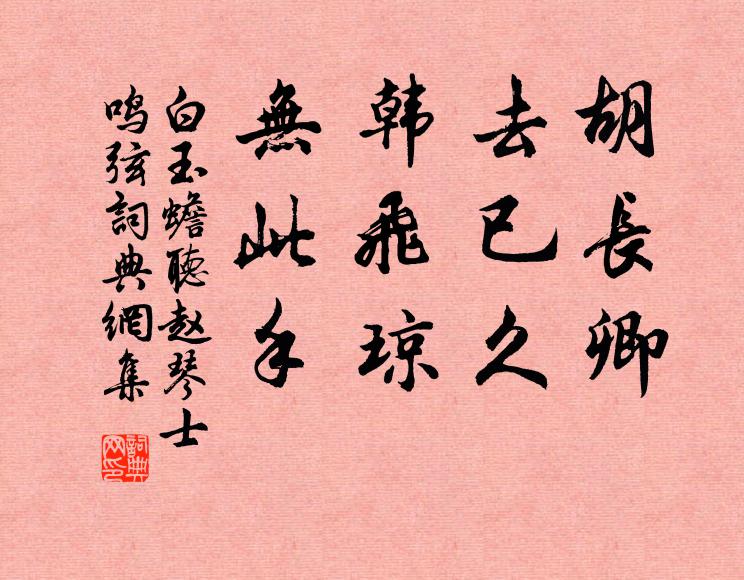 胡長卿
去已久
韩飛琼
無此手
白玉蟾聽赵琴士
鸣弦詞典網集
詞典网印